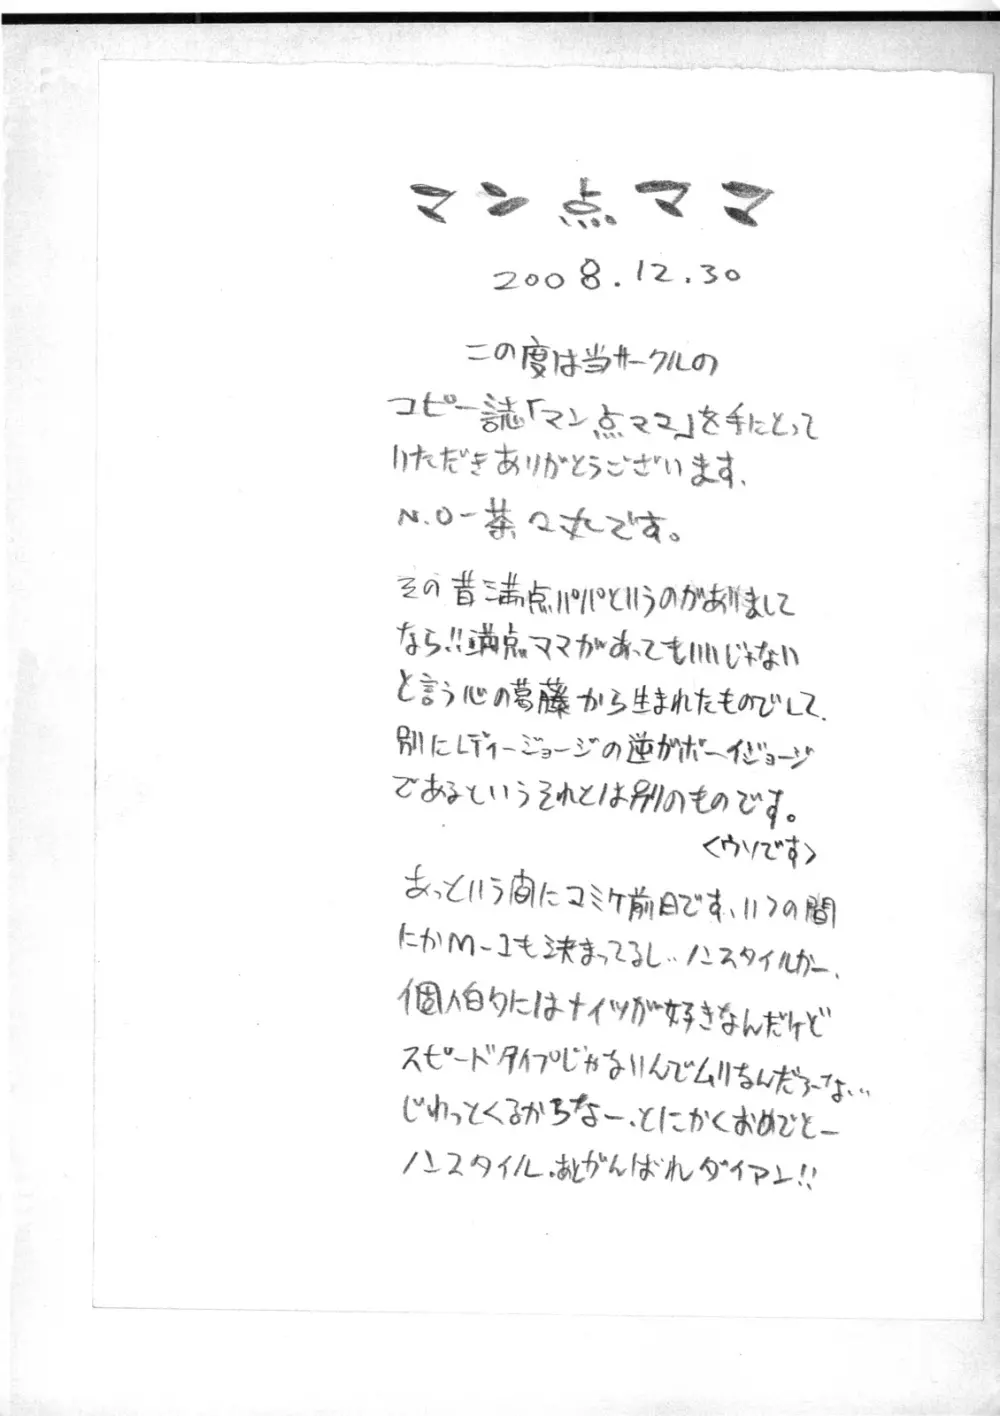 マン点ママ
2008.12.30
この度は当サークルの
コピー誌「マン点ママ」を手にとって
いただきありがとうございます、
N.O-茶々丸です。
その昔満点パパというのがありまして
なら!!満点ママがあってもいいじゃない
と言う心の葛藤から生まれたものでして、
別にレディージョージの逆がボーイジョージ
であるというそれとは別のものです。
<ウソです>
あっという間にコミケ前日です、いつの間
にかM-1も決まってるし‥ノンスタイルかー、
個人的にはナイツが好きなんだけど
スピードタイプじゃないんでムリなんだろーな…
じわっとくるからなー、とにかくおめでとー
ノンスタイル、あとがんばれダイアン!!